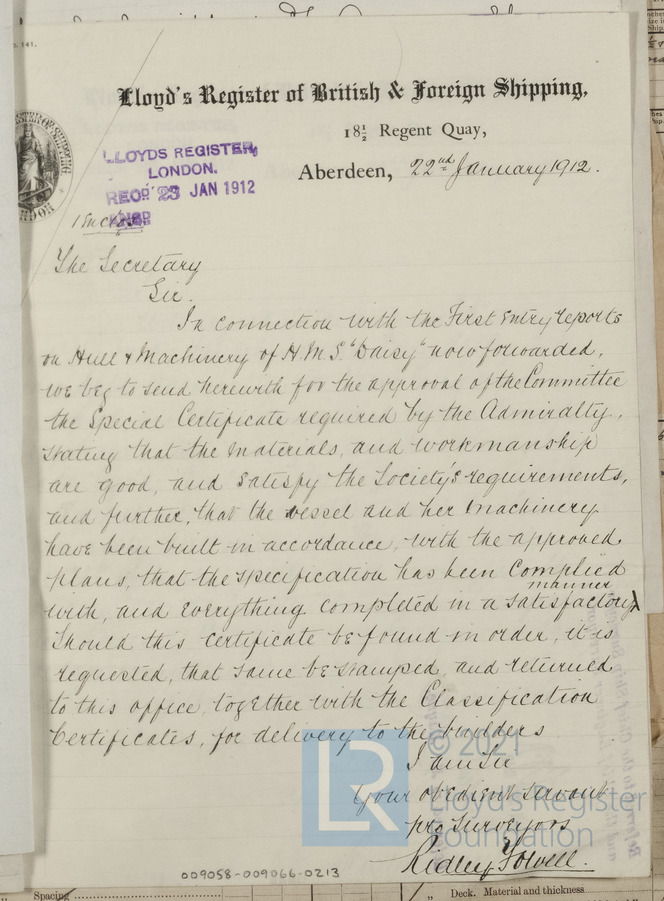 o. 141.
Lloyd's Register of British & Foreign Shipping,
18½ Regent Quay,
Aberdeen, 22nd January 1912.
LLOYDS REGISTER,
LONDON.
REC'D 23 JAN 1912
ANSD
1 Enclo
The Secretary
Sir.
In connection with the First Entry reports
on Hull & Machinery of H.M.S. "Daisy" now forwarded,
we beg to send herewith for the approval of the Committee
the Special Certificate required by the Admiralty,
stating that the materials, and workmanship
are good, and satisfy the Society's requirements,
and further, that the vessel and her machinery
have been built in accordance, with the approved
plans, that the specification has been complied
with, and everything completed in a satisfactory manner
Should this certificate be found in order, it is
requested, that same be stamped, and returned
to this office, together with the Classification
Certificates, for delivery to the builders
I am Sir
Your obedient servant
pro Surveyors
Ridley Fowell.
LR
© 2021
Lloyd's Register
Foundation
009058-009066-0213
Spacing
" Deck. Material and thickness